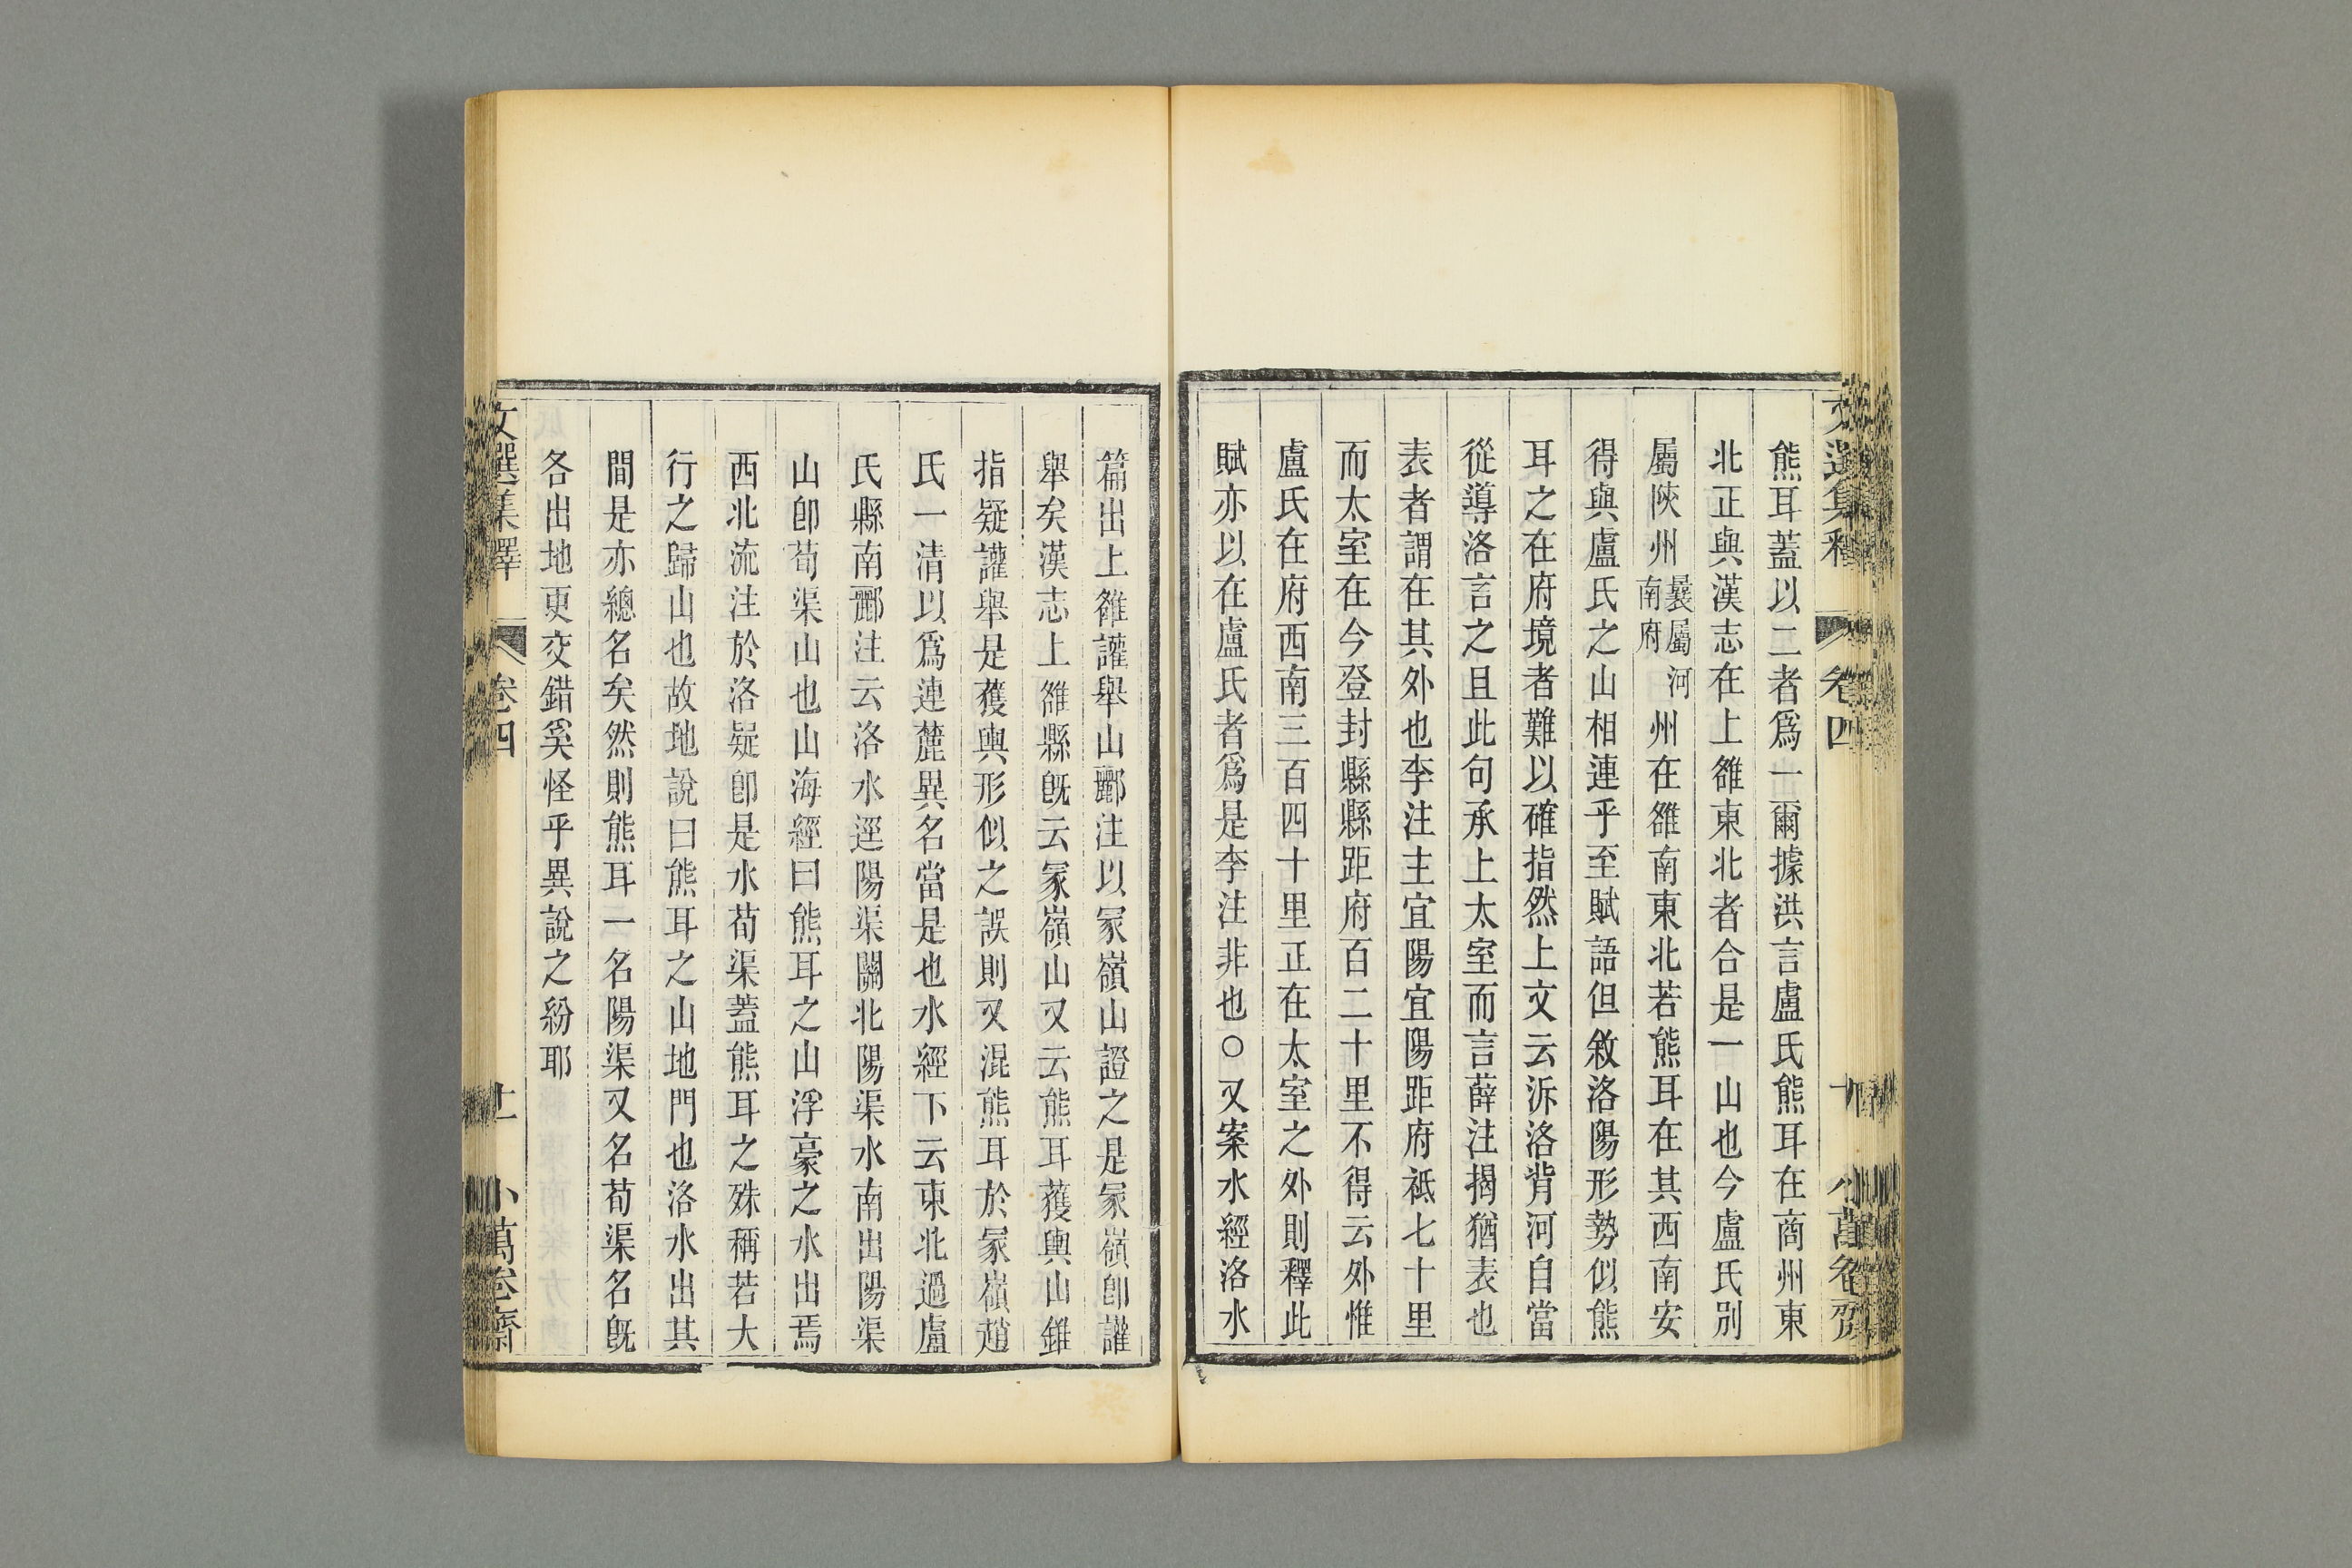 熊耳蓋以二者爲一爾據洪言盧氏熊耳在商州東
北正與漢志在上雒東北者合是一山也今盧氏别
屬陝州曩屬河南府州在雒南東北若熊耳在其西南安
得與盧氏之山相連乎至賦語但敘洛陽形勢似熊
耳之在府境者難以確指然上文云泝洛背河自當
從導洛言之且此句承上太室而言薛注揭猶表也
表者謂在其外也李注主宜陽宜陽距府祗七十里
而太室在今登封縣縣距府百二十里不得云外惟
盧氏在府西南三百四十里正在太室之外則釋此
賦亦以在盧氏者爲是李注非也○又案水經洛水
篇出上雒讙舉山酈注以冢嶺山證之是冢嶺卽讙
舉矣漢志上雒縣旣云冢嶺山又云熊耳獲輿山錐
指疑讙舉是獲輿形似之誤則又混熊耳於冢嶺趙
氏一清以爲連麓異名當是也水經下云東北過盧
氏縣南酈注云洛水逕陽渠關北陽渠水南出陽渠
山卽荀渠山也山海經曰熊耳之山浮豪之水出焉
西北流注於洛疑卽是水荀渠蓋熊耳之殊稱若大
行之歸山也故地說曰熊耳之山地門也洛水出其
間是亦總名矣然則熊耳一名陽渠又名荀渠名旣
各出地更交錯奚怪乎異說之紛耶
文選集釋
卷四
十一
小萬卷齋